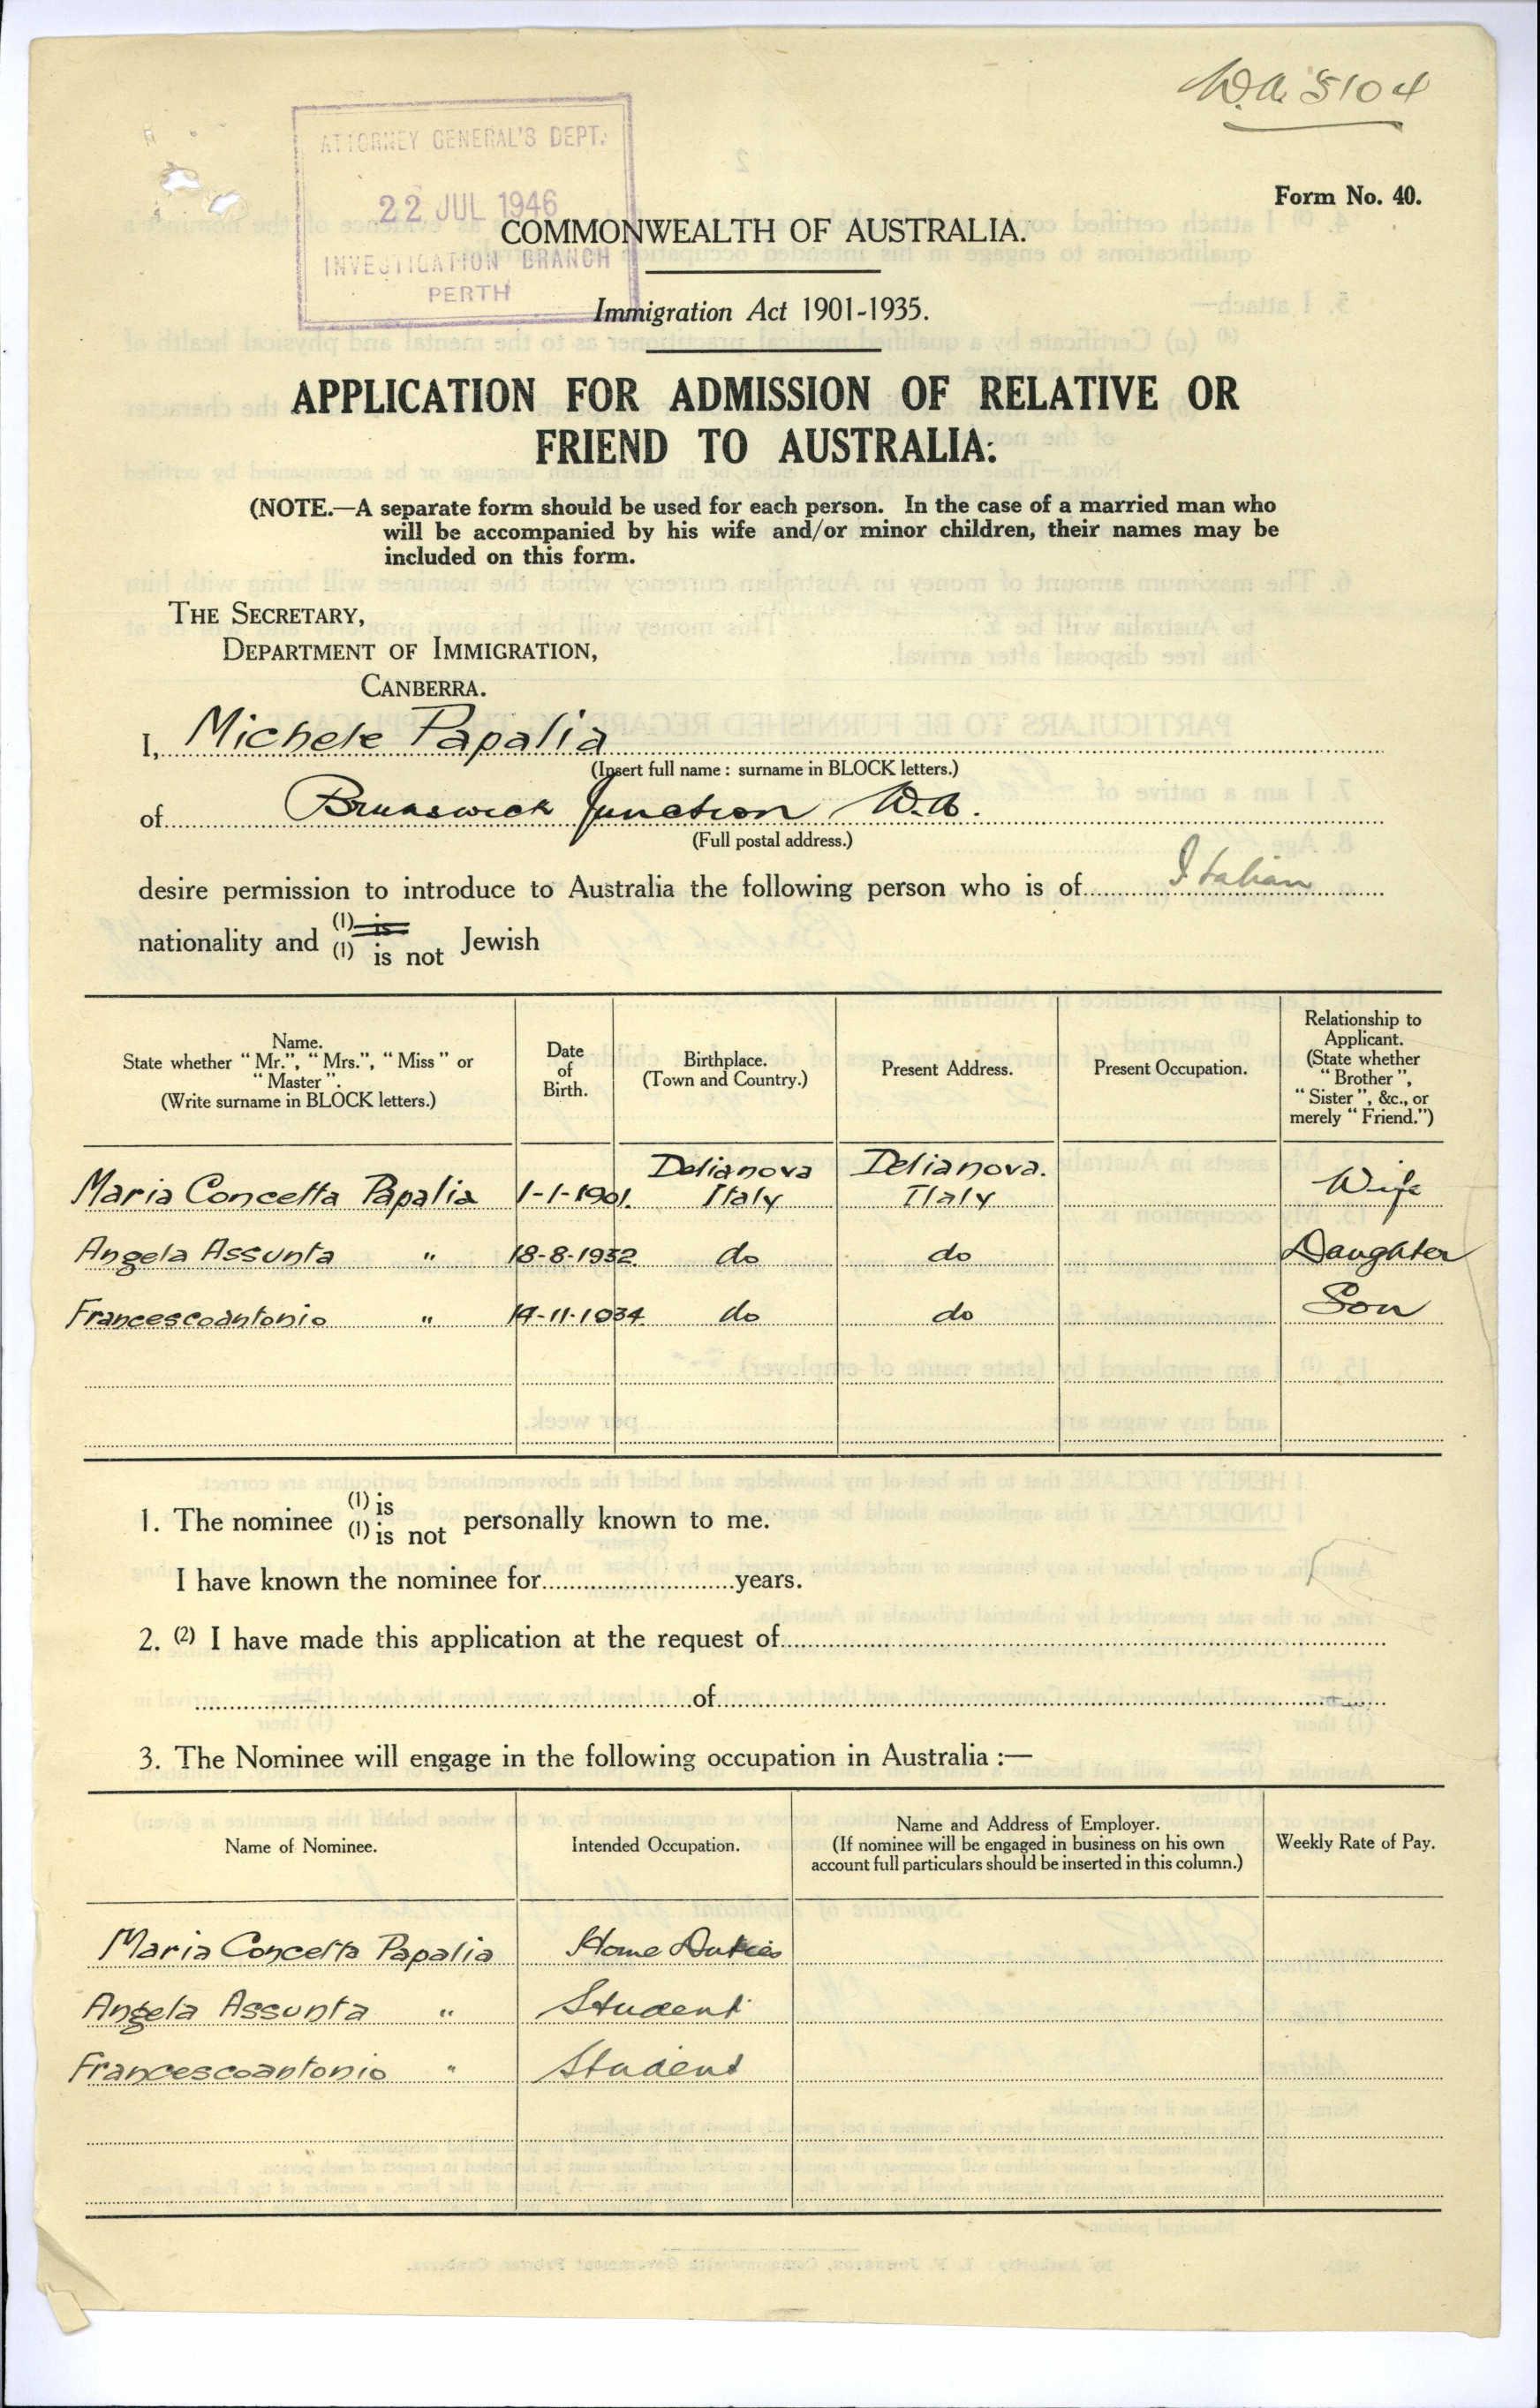 W.A. 5104
ATTORNEY GENERAL'S DEPT.
22 JUL 1946
INVESTIGATION BRANCH
PERTH
Form No. 40.
COMMONWEALTH OF AUSTRALIA.
Immigration Act 1901-1935.
APPLICATION FOR ADMISSION OF RELATIVE OR
FRIEND TO AUSTRALIA.
(NOTE.—A separate form should be used for each person. In the case of a married man who
will be accompanied by his wife and/or minor children, their names may be
included on this form.
THE SECRETARY,
DEPARTMENT OF IMMIGRATION,
CANBERRA.
I, Michele Papalia
(Insert full name: surname in BLOCK letters.)
of Brunswick Junction W.A.
(Full postal address.)
desire permission to introduce to Australia the following person who is of Italian
nationality and (1) is (1) is not Jewish
Name. State whether "Mr.", "Mrs.", "Miss" or "Master". (Write surname in BLOCK letters.) Date of Birth. Birthplace. (Town and Country.) Present Address. Present Occupation. Relationship to Applicant. (State whether "Brother", "Sister", &c., or merely "Friend.")
Maria Concetta Papalia 1-1-1901. Delianova Italy Delianova. Italy Wife
Angela Assunta " 18-8-1932. do do Daughter
Francescoantonio " 19-11-1934. do do Son
1. The nominee (1) is (1) is not personally known to me.
I have known the nominee for years.
2. (2) I have made this application at the request of
of
3. The Nominee will engage in the following occupation in Australia :—
Name of Nominee. Intended Occupation. Name and Address of Employer. (If nominee will be engaged in business on his own account full particulars should be inserted in this column.) Weekly Rate of Pay.
Maria Concetta Papalia Home Duties
Angela Assunta " Student
Francescoantonio " Student